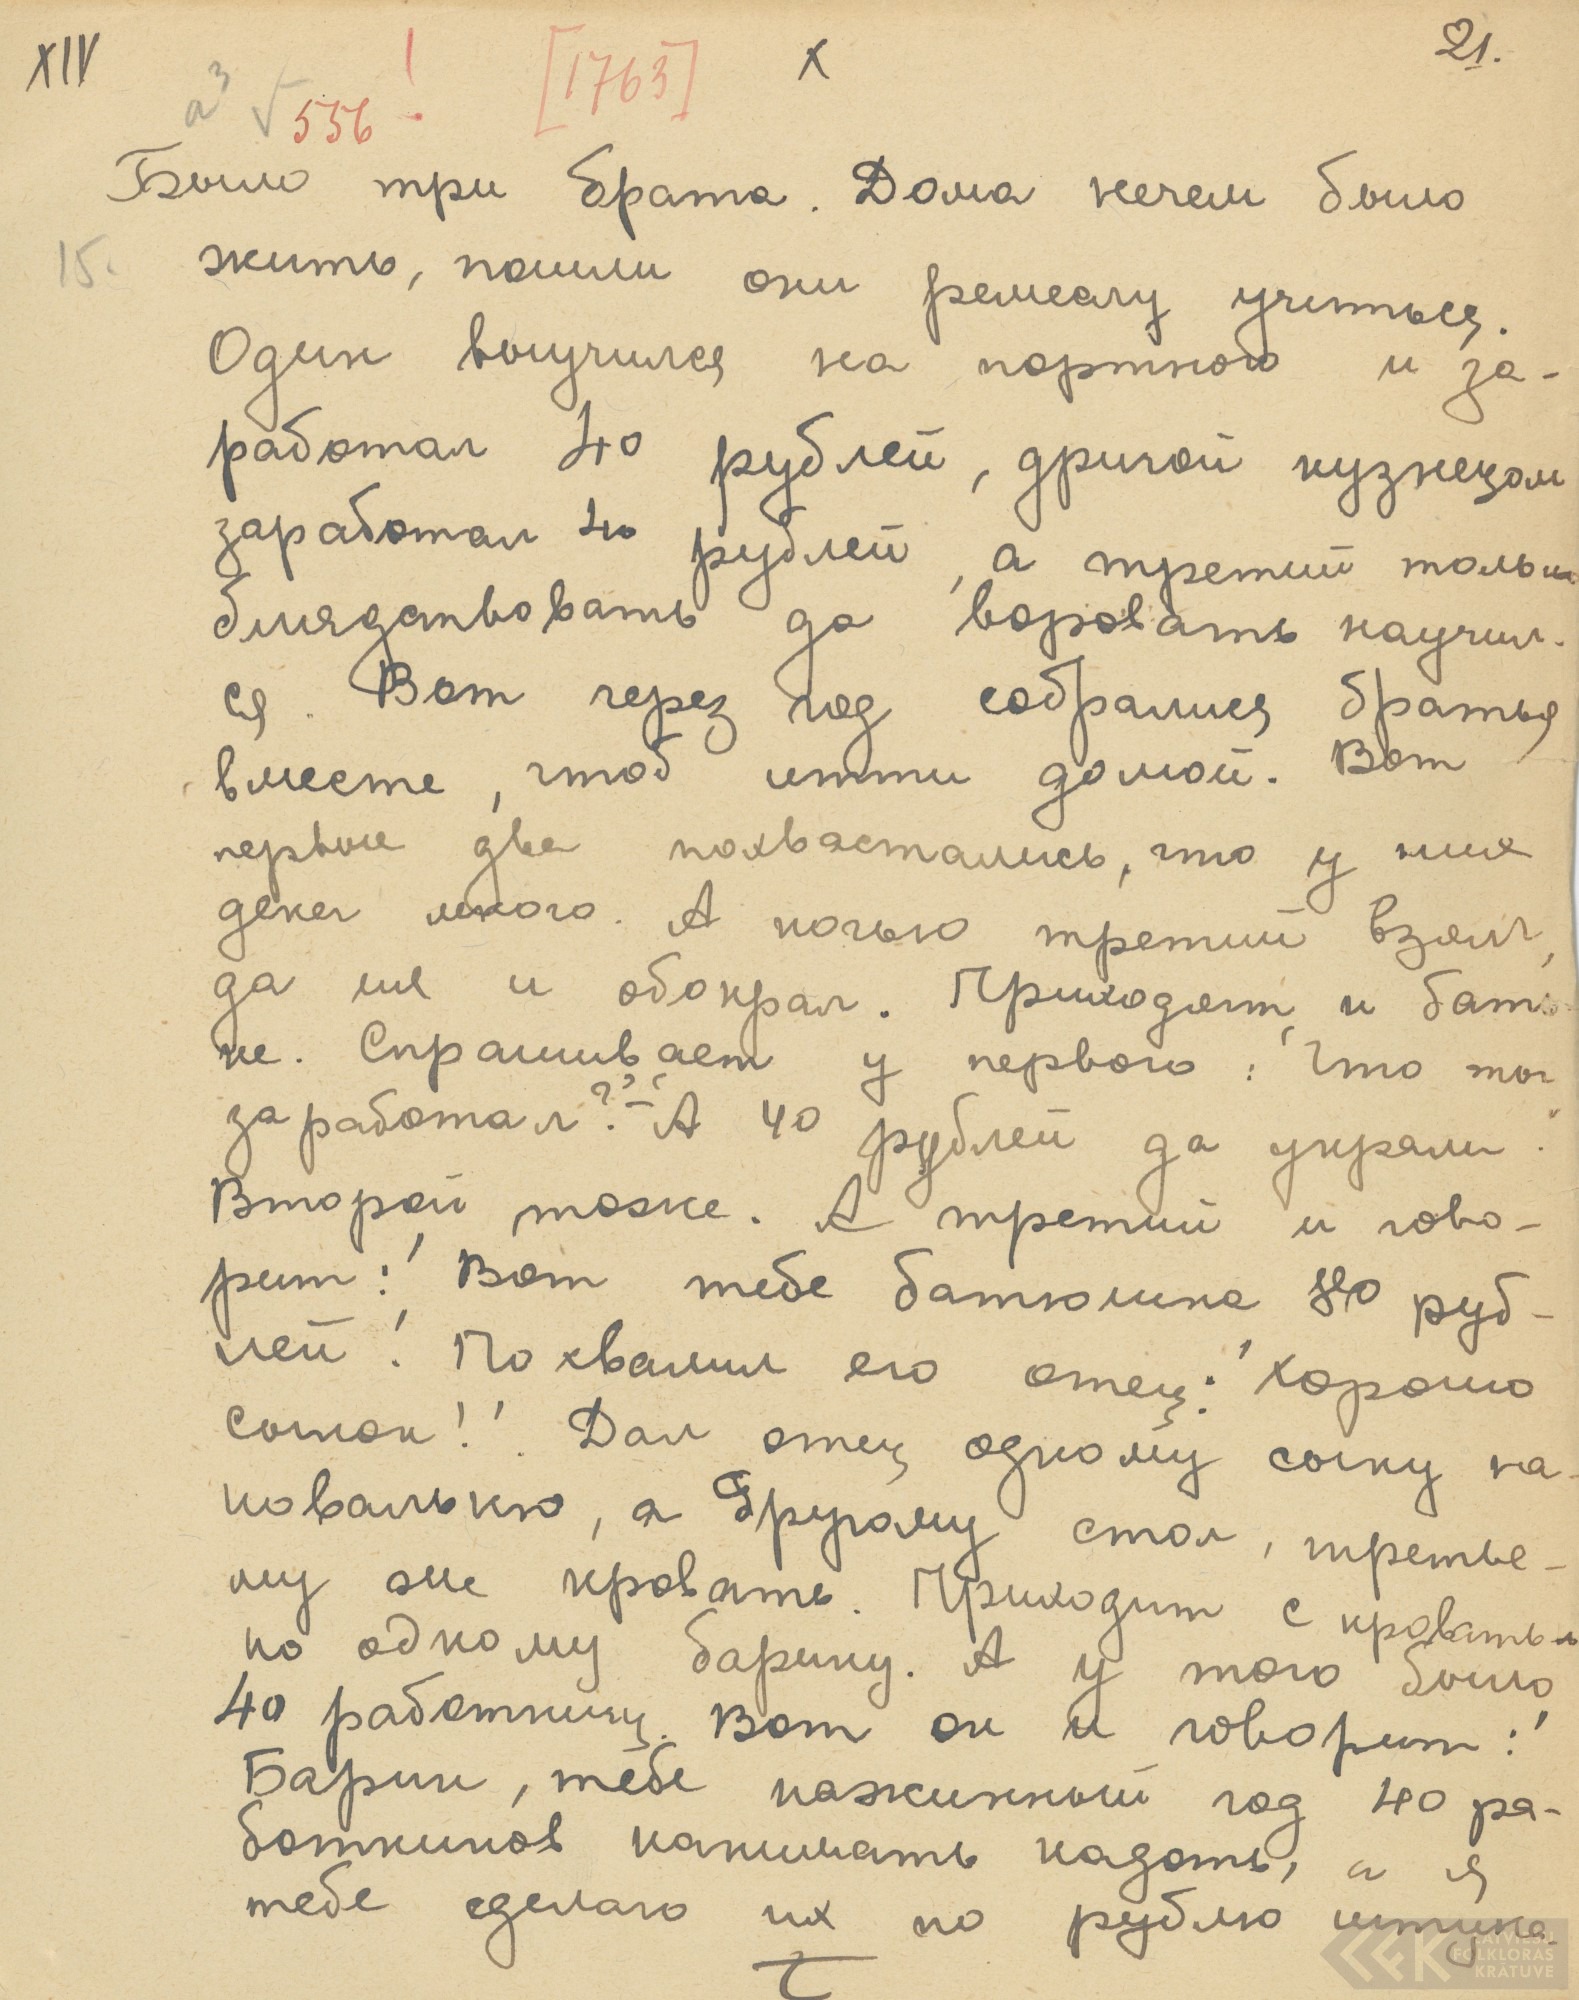 XIV a³ √ 556 ! [1763] X 21.
Было три брата. Дома нечем было
15. жить, пошли они ремеслу учиться.
Один выучился на портного и за-
работал 40 рублей, другой кузнецом
заработал 40 рублей, а третий только
блядствовать да воровать научил-
ся. Вот через год собрались братья
вместе, чтоб итти домой. Вот
первые два похвастались, что у них
денег много. А ночью третий взял,
да их и обокрал. Приходят к бать-
ке. Спрашивает у первого: 'Что ты
заработал?' – 'А 40 рублей да украли.'
Второй тоже. А третий и гово-
рит: 'Вот тебе батюшка 80 руб-
лей'. Похвалил его отец: 'Хорошо
сынок!'. Дал отец одному сыну на-
ковальню, а другому стол, третье-
му же кровать. Приходит с кроватью
ко одному барину. А у того было
40 работниц. Вот он и говорит: '
Барин, тебе кажинный год 40 ра-
ботников нанимать надоть, а я
тебе сделаю их по рублю штука.
LATVIEŠU
FOLKLORAS
KRĀTUVE